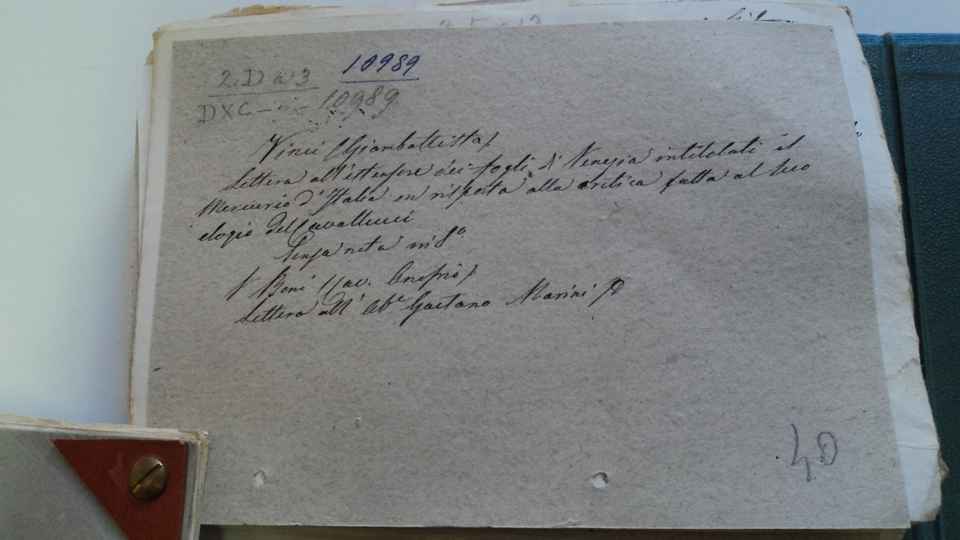 2. D a 3 10989
DXC-n- 10989
Vinci (Giambattista)
Lettera all'estensore dei fogli di Venezia intitolati il
Mercurio d'Italia in risposta alla critica fatta al suo
elogio del Cavallucci
Senza nota in 8°
V Boni (Cav. Onofrio)
Lettera all' Ab.e Gaetano Marini
40